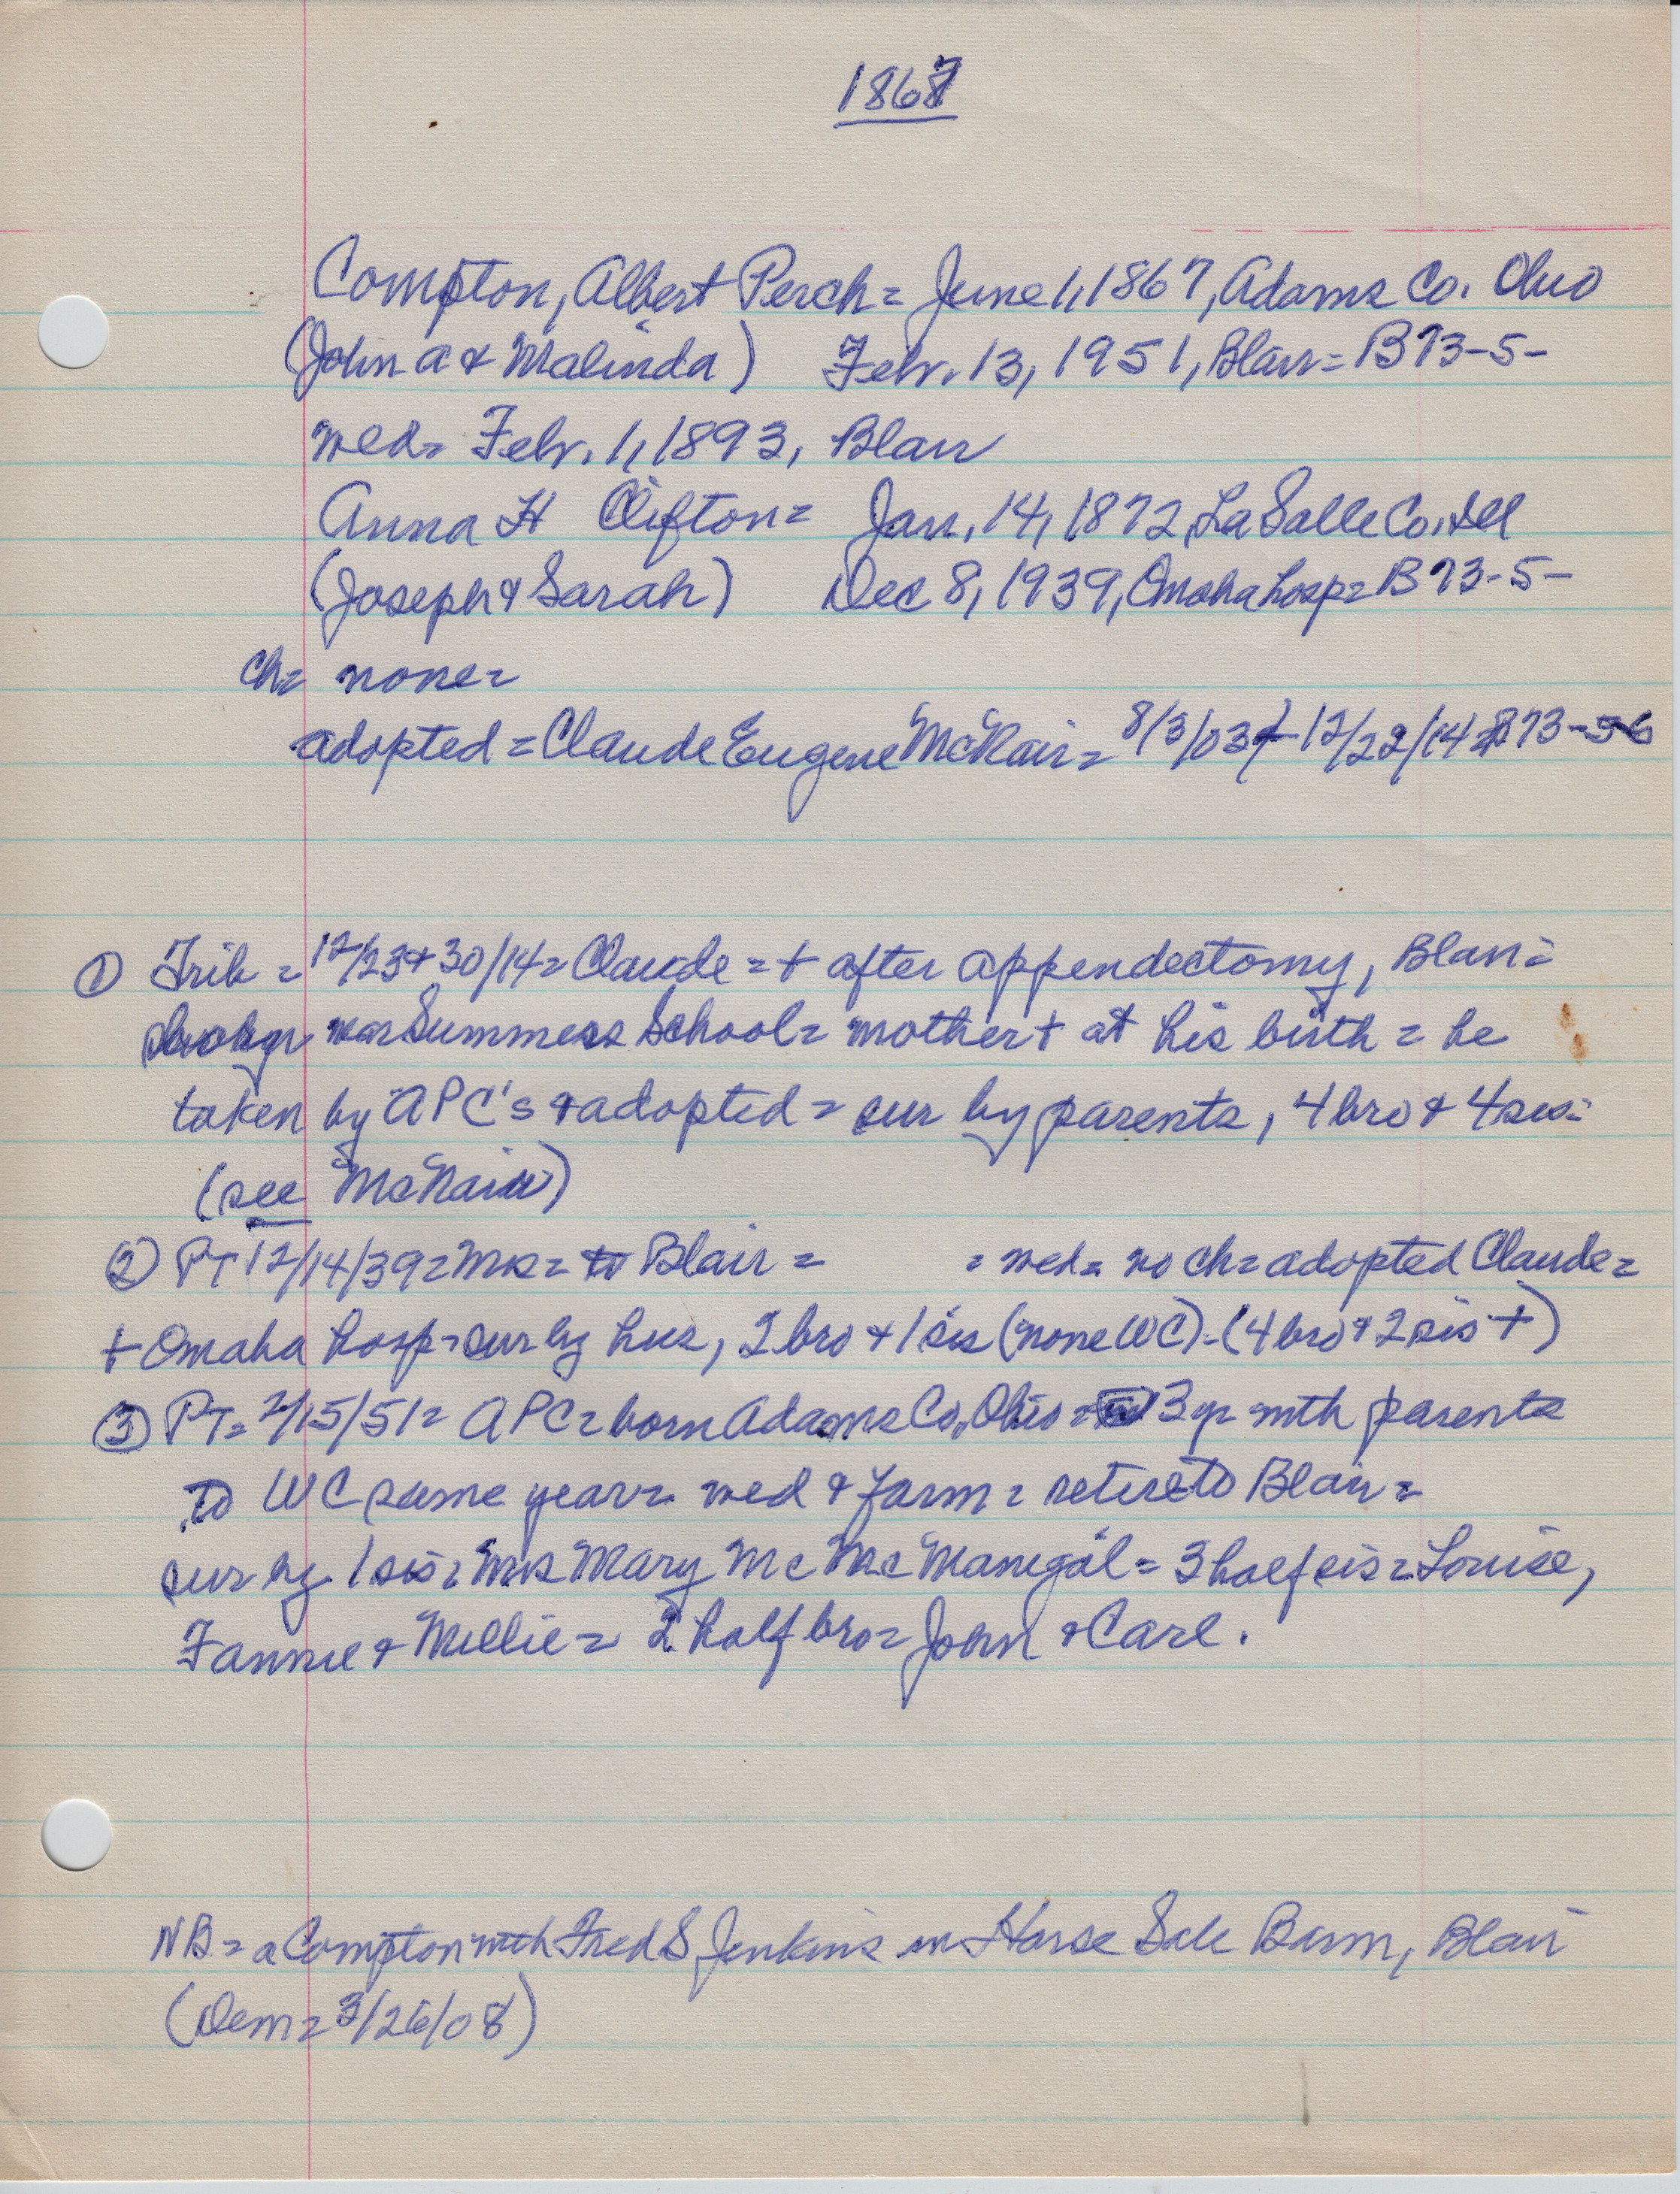 1867
Compton, Albert Perch = June 1, 1867, Adams Co. Ohio
(John A & Malinda) Febr. 13, 1951, Blair = B73-5-
wed = Febr. 1, 1893, Blair
Anna H Clifton = Jan. 14, 1872, LaSalle Co. Ill
(Joseph & Sarah) Dec 8, 1939, Omaha hosp = B73-5-
ch = none =
adopted = Claude Eugene "McNair" = 8/3/03 + 12/22/14 = B73-5-6
① Trib = 12/23 + 30/14 = Claude = + after appendectomy, Blair =
near Summers School = mother + at his birth = he
taken by APC's & adopted = sur by parents, 4 bro & 4 sis =
(see McNair)
② PT 12/14/39 = Mrs = to Blair = = wed = no ch = adopted Claude =
+ Omaha hosp = sur by hus, 2 bro + 1 sis (none WC) - (4 bro & 2 sis +)
③ PT = 2/15/51 = APC = born Adams Co, Ohio = 3 yr with parents
to WC same year = wed & farm = retire to Blair =
sur by 1 sis = Mrs Mary Mc Manigal = 3 half sis = Louise,
Fannie & Millie = 2 half bro = John & Carl.
NB = a Compton with Fred S Jenkins in Horse Sale Barn, Blair
(Dem = 3/26/08)